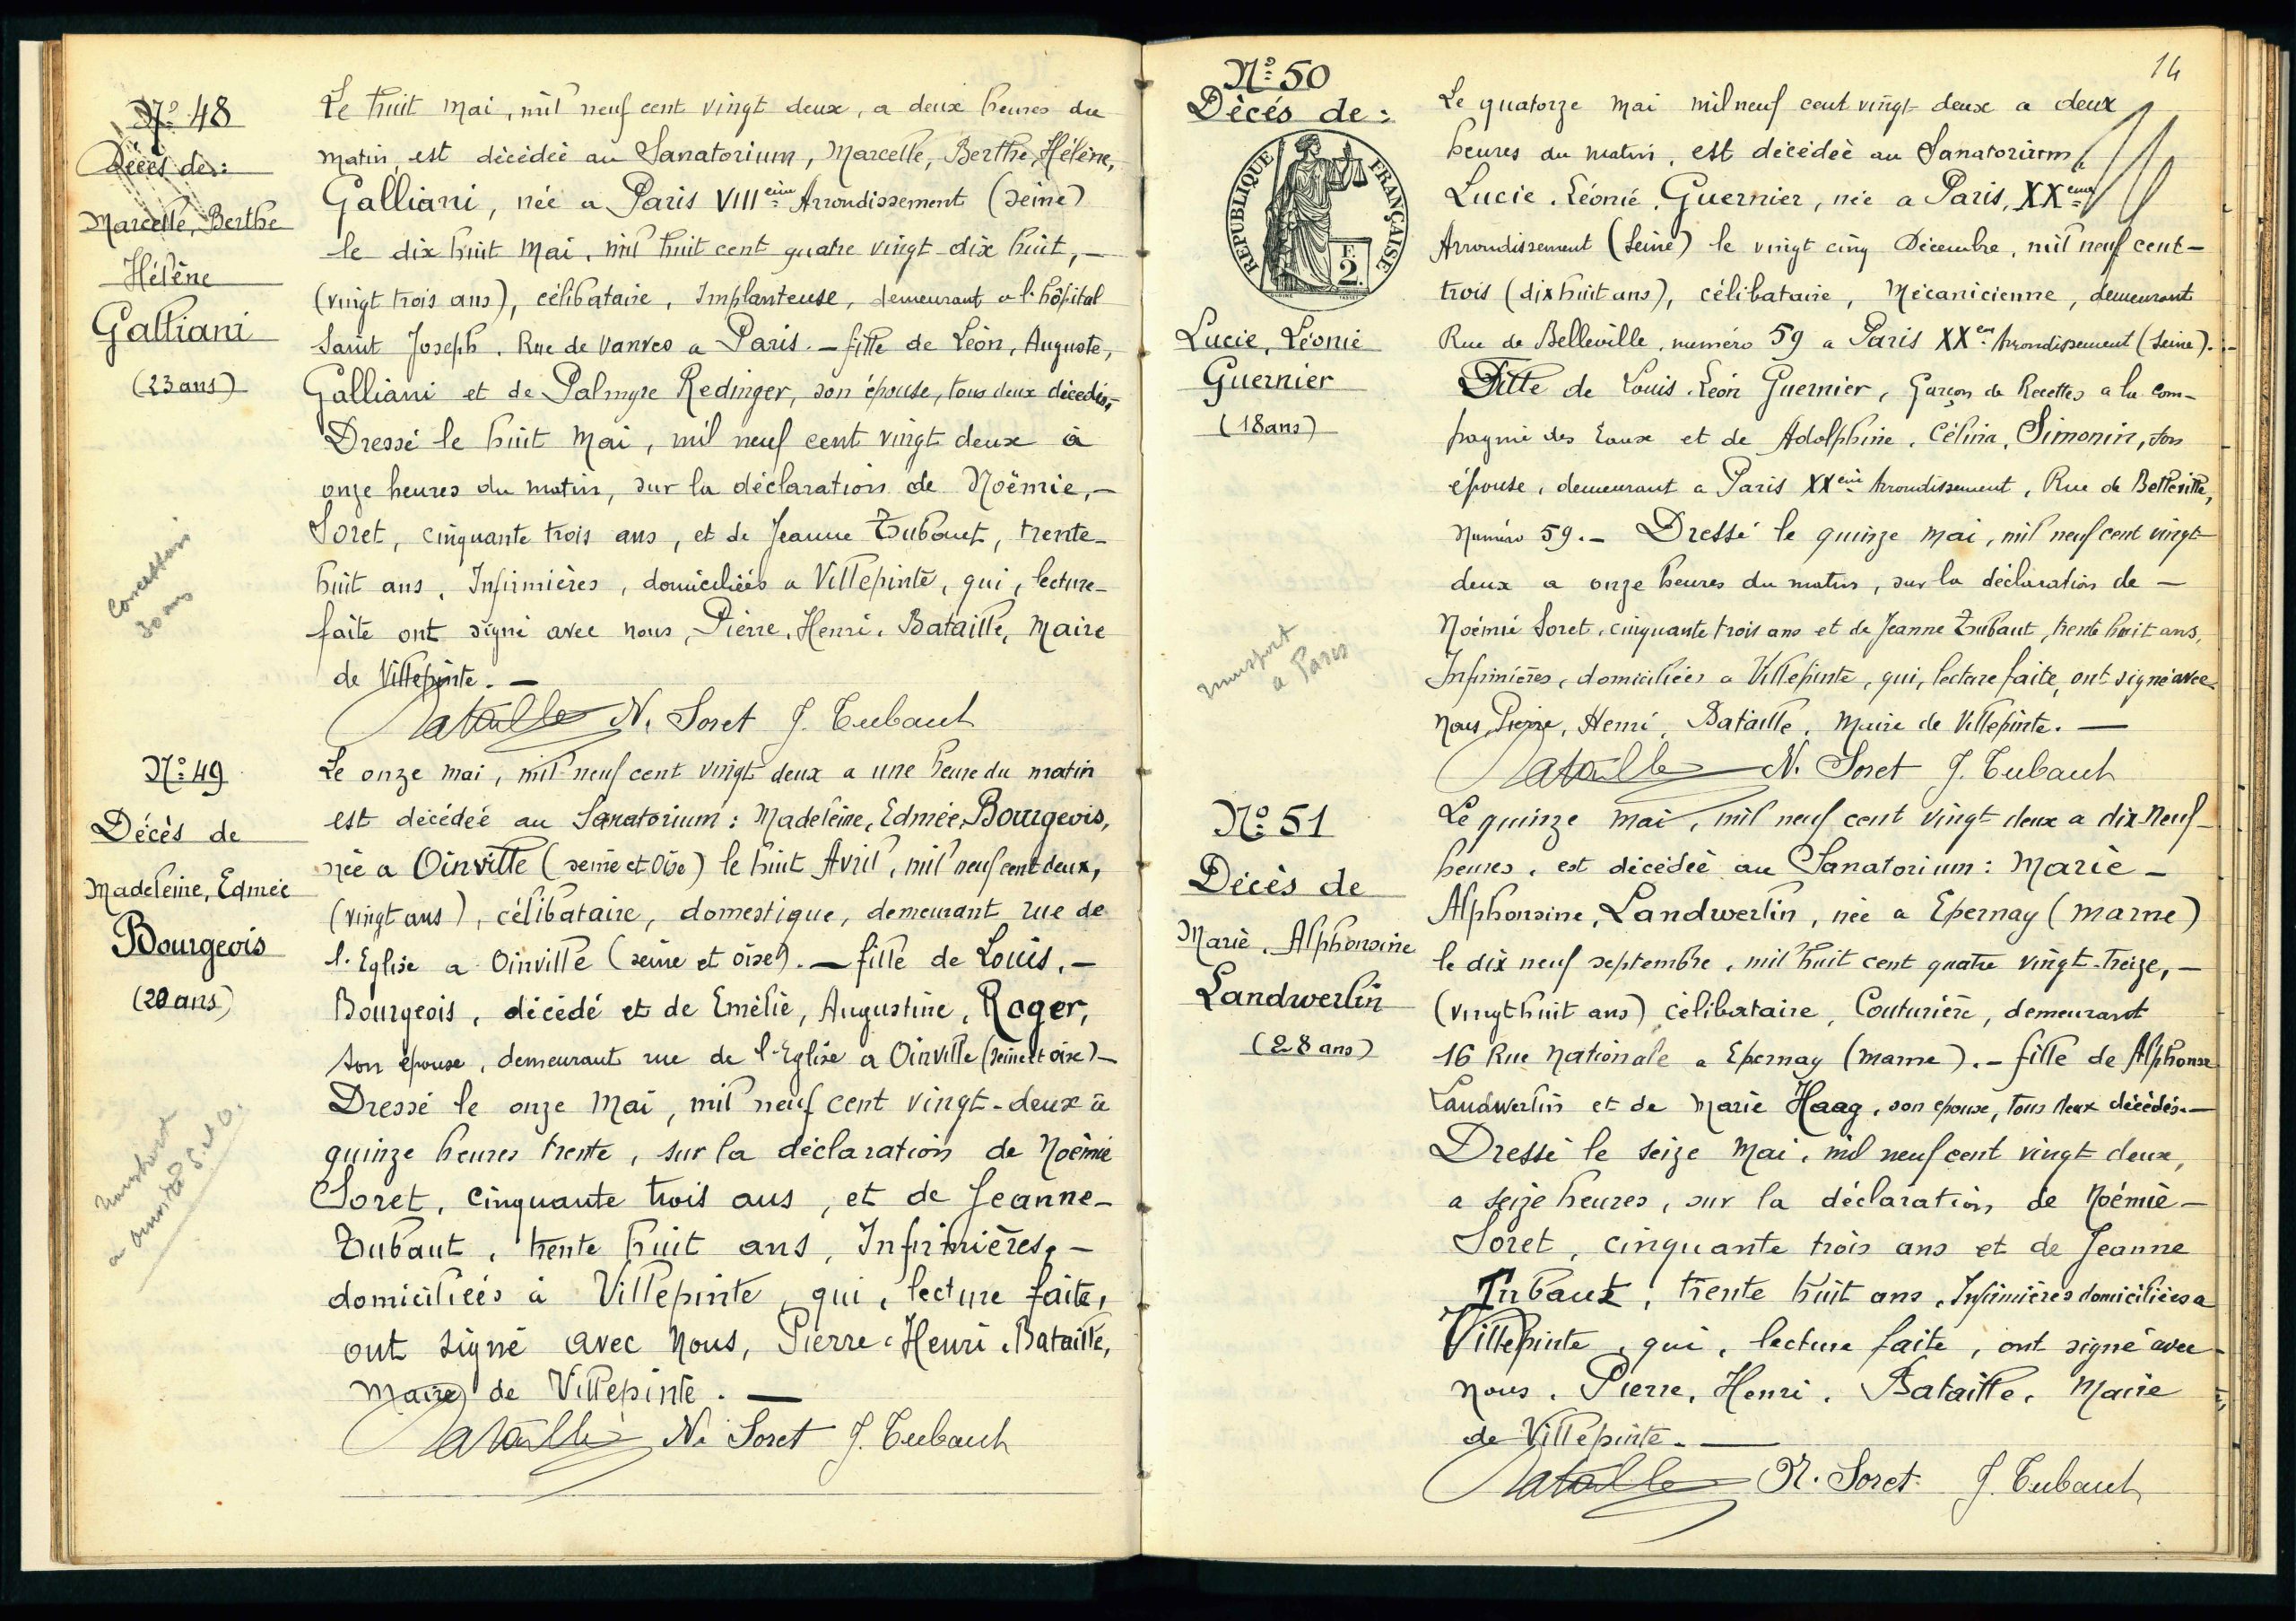 Nº 48
Décès de:
Marcelle, Berthe
Hélène
Galliani
(23 ans)
Le huit mai, mil neuf cent vingt deux, a deux heures du
matin, est décédée au Sanatorium, Marcelle, Berthe, Hélène,
Galliani, née a Paris VIIIeme Arrondissement (Seine)
le dix huit Mai, mil huit cent quatre vingt dix huit, —
(vingt trois ans), célibataire, Implanteuse, demeurant a l'hôpital
Saint Joseph. Rue de Vanves a Paris. — fille de Léon, Auguste,
Galliani et de Palmyre Redinger, son épouse, tous deux décédés,—
Dressé le huit Mai, mil neuf cent vingt deux à
onze heures du matin, sur la déclaration de Noëmie, —
Soret, cinquante trois ans, et de Jeanne Tubaut, trente-
huit ans, Infirmières, domiciliées a Villepinte, qui, lecture-
faite ont signé avec nous, Pierre, Henri, Bataille, Maire
de Villepinte. —
Bataille N. Soret J. Tubaut
Concession
30 ans
Nº 49
Décès de
Madeleine, Edmée
Bourgeois
(20 ans)
Le onze mai, mil neuf cent vingt deux a une heure du matin
est décédée au Sanatorium: Madeleine, Edmée, Bourgeois,
née a Oinville (Seine et Oise) le huit Avril, mil neuf cent deux,
(vingt ans), célibataire, domestique, demeurant rue de
l'Eglise a Oinville (Seine et Oise). — fille de Louis, —
Bourgeois, décédé et de Emélie, Augustine, Roger,
son épouse, demeurant rue de l'Eglise a Oinville (Seine et Oise) —
Dressé le onze Mai, mil neuf cent vingt-deux à
quinze heures trente, sur la déclaration de Noëmie
Soret, cinquante trois ans, et de Jeanne-
Tubaut, trente huit ans, Infirmières, —
domiciliées à Villepinte, qui, lecture faite,
ont signé avec Nous, Pierre. Henri. Bataille,
Maire de Villepinte. —
Bataille N. Soret J. Tubaut
transport
a S. et O.
14
Nº 50
Décès de:
REPUBLIQUE FRANÇAISE
F.
2.
Lucie, Léonie
Guernier
(18 ans)
Le quatorze mai mil neuf cent vingt deux a deux
heures du matin, est décédée au Sanatorium
Lucie. Léonie. Guernier, née a Paris, XXeme
Arrondissement (Seine) le vingt cinq Décembre, mil neuf cent-
trois (dix huit ans), célibataire, Mécanicienne, demeurant
Rue de Belleville, numéro 59 a Paris XXem Arrondissement (Seine). —
Fille de Louis. Léon Guernier, Garçon de Recettes a la com-
pagnie des Eaux et de Adolphine, Célina, Simonin, son
épouse, demeurant a Paris XXeme Arrondissement, Rue de Belleville,
Numéro 59. — Dressé le quinze mai, mil neuf cent vingt-
deux a onze heures du matin, sur la déclaration de —
Noémie Soret, cinquante trois ans et de Jeanne Tubaut, trente huit ans,
Infirmières, domiciliées a Villepinte, qui, lecture faite, ont signé avec
Nous, Pierre, Henri, Bataille, Maire de Villepinte. —
Bataille N. Soret J. Tubaut
transport
a Paris
Nº 51
Décès de
Marie, Alphonsine
Landwerlin
(28 ans)
Le quinze mai, mil neuf cent vingt deux a dix-neuf-
heures, est décédée au Sanatorium: Marie —
Alphonsine, Landwerlin, née a Epernay (Marne)
le dix neuf septembre, mil huit cent quatre vingt-treize, —
(vingt huit ans) célibataire, Couturière, demeurant
16 Rue Nationale a Epernay (Marne). — fille de Alphonse
Landwerlin et de Marie Haag, son épouse, tous deux décédés. —
Dressé le seize Mai, mil neuf cent vingt deux,
a seize heures, sur la déclaration de Noémie —
Soret, cinquante trois ans et de Jeanne
Tubaut, trente huit ans, Infirmières domiciliées a
Villepinte, qui, lecture faite, ont signé avec
Nous, Pierre, Henri, Bataille, Maire
de Villepinte. —
Bataille N. Soret J. Tubaut